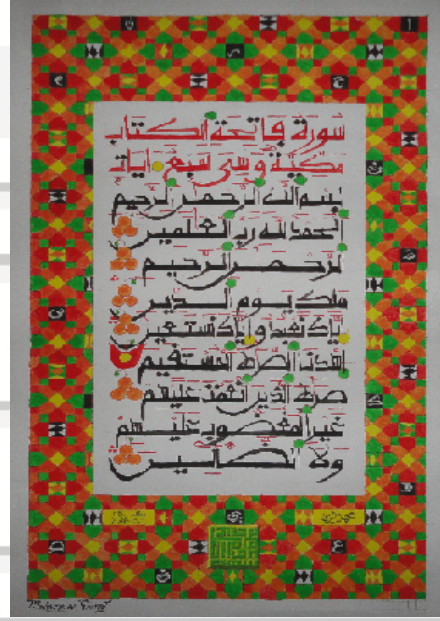 سورة فاتحة الكتاب
مكية وهى سبع ايات
بسم الله الرحمن الرحيم
الحمد لله رب العلمين
الرحمن الرحيم
ملك يوم الدين
اياك نعبد واياك نستعين
اهدنا الصرط المستقيم
صرط الذين انعمت عليهم
غير المغضوب عليهم
ولا الضالين